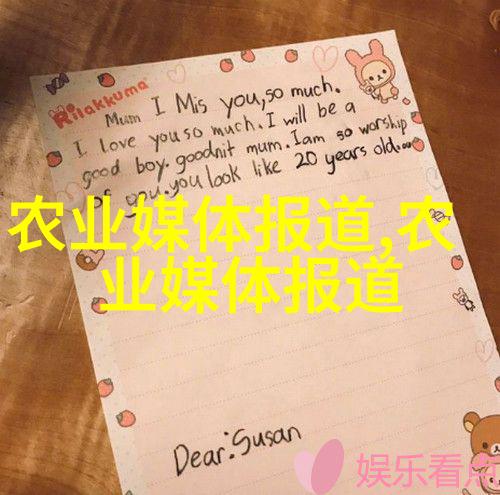 Rilakkuma
Mum I Mis you,so much.
I love you so much. I will be a
good boy. goodnit mum. I am so worship
of you. you look like 20 years old.
农业媒体报道,农
业媒体报道
Dear:Susan
娱乐看点